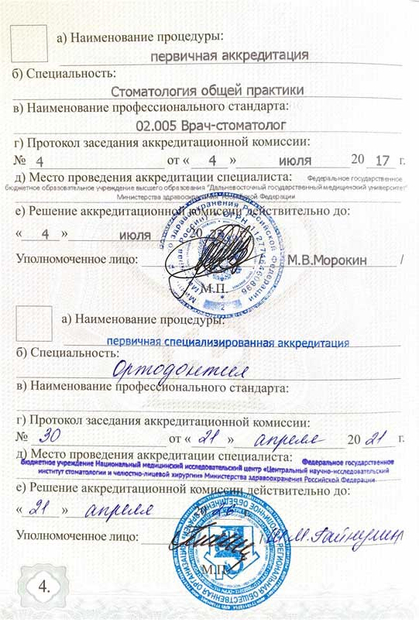 а) Наименование процедуры:
первичная аккредитация
б) Специальность:
Стоматология общей практики
в) Наименование профессионального стандарта:
02.005 Врач-стоматолог
г) Протокол заседания аккредитационной комиссии:
№ 4 от « 4 » июля 2017 г.
д) Место проведения аккредитации специалиста: Федеральное государственное
бюджетное образовательное учреждение высшего образования "Дальневосточный государственный медицинский университет"
Министерства здравоохранения Российской Федерации
е) Решение аккредитационной комиссии действительно до:
« 4 » июля 20
Уполномоченное лицо: М.В.Морокин /
М.П.
а) Наименование процедуры:
первичная специализированная аккредитация
б) Специальность:
Ортодонтия
в) Наименование профессионального стандарта:
г) Протокол заседания аккредитационной комиссии:
№ 30 от « 21 » апреля 2021 г.
д) Место проведения аккредитации специалиста: Федеральное государственное
бюджетное учреждение Национальный медицинский исследовательский центр «Центральный научно-исследовательский
институт стоматологии и челюстно-лицевой хирургии» Министерства здравоохранения Российской Федерации
е) Решение аккредитационной комиссии действительно до:
« 21 » апреля 20
Уполномоченное лицо:
М.П.
4.